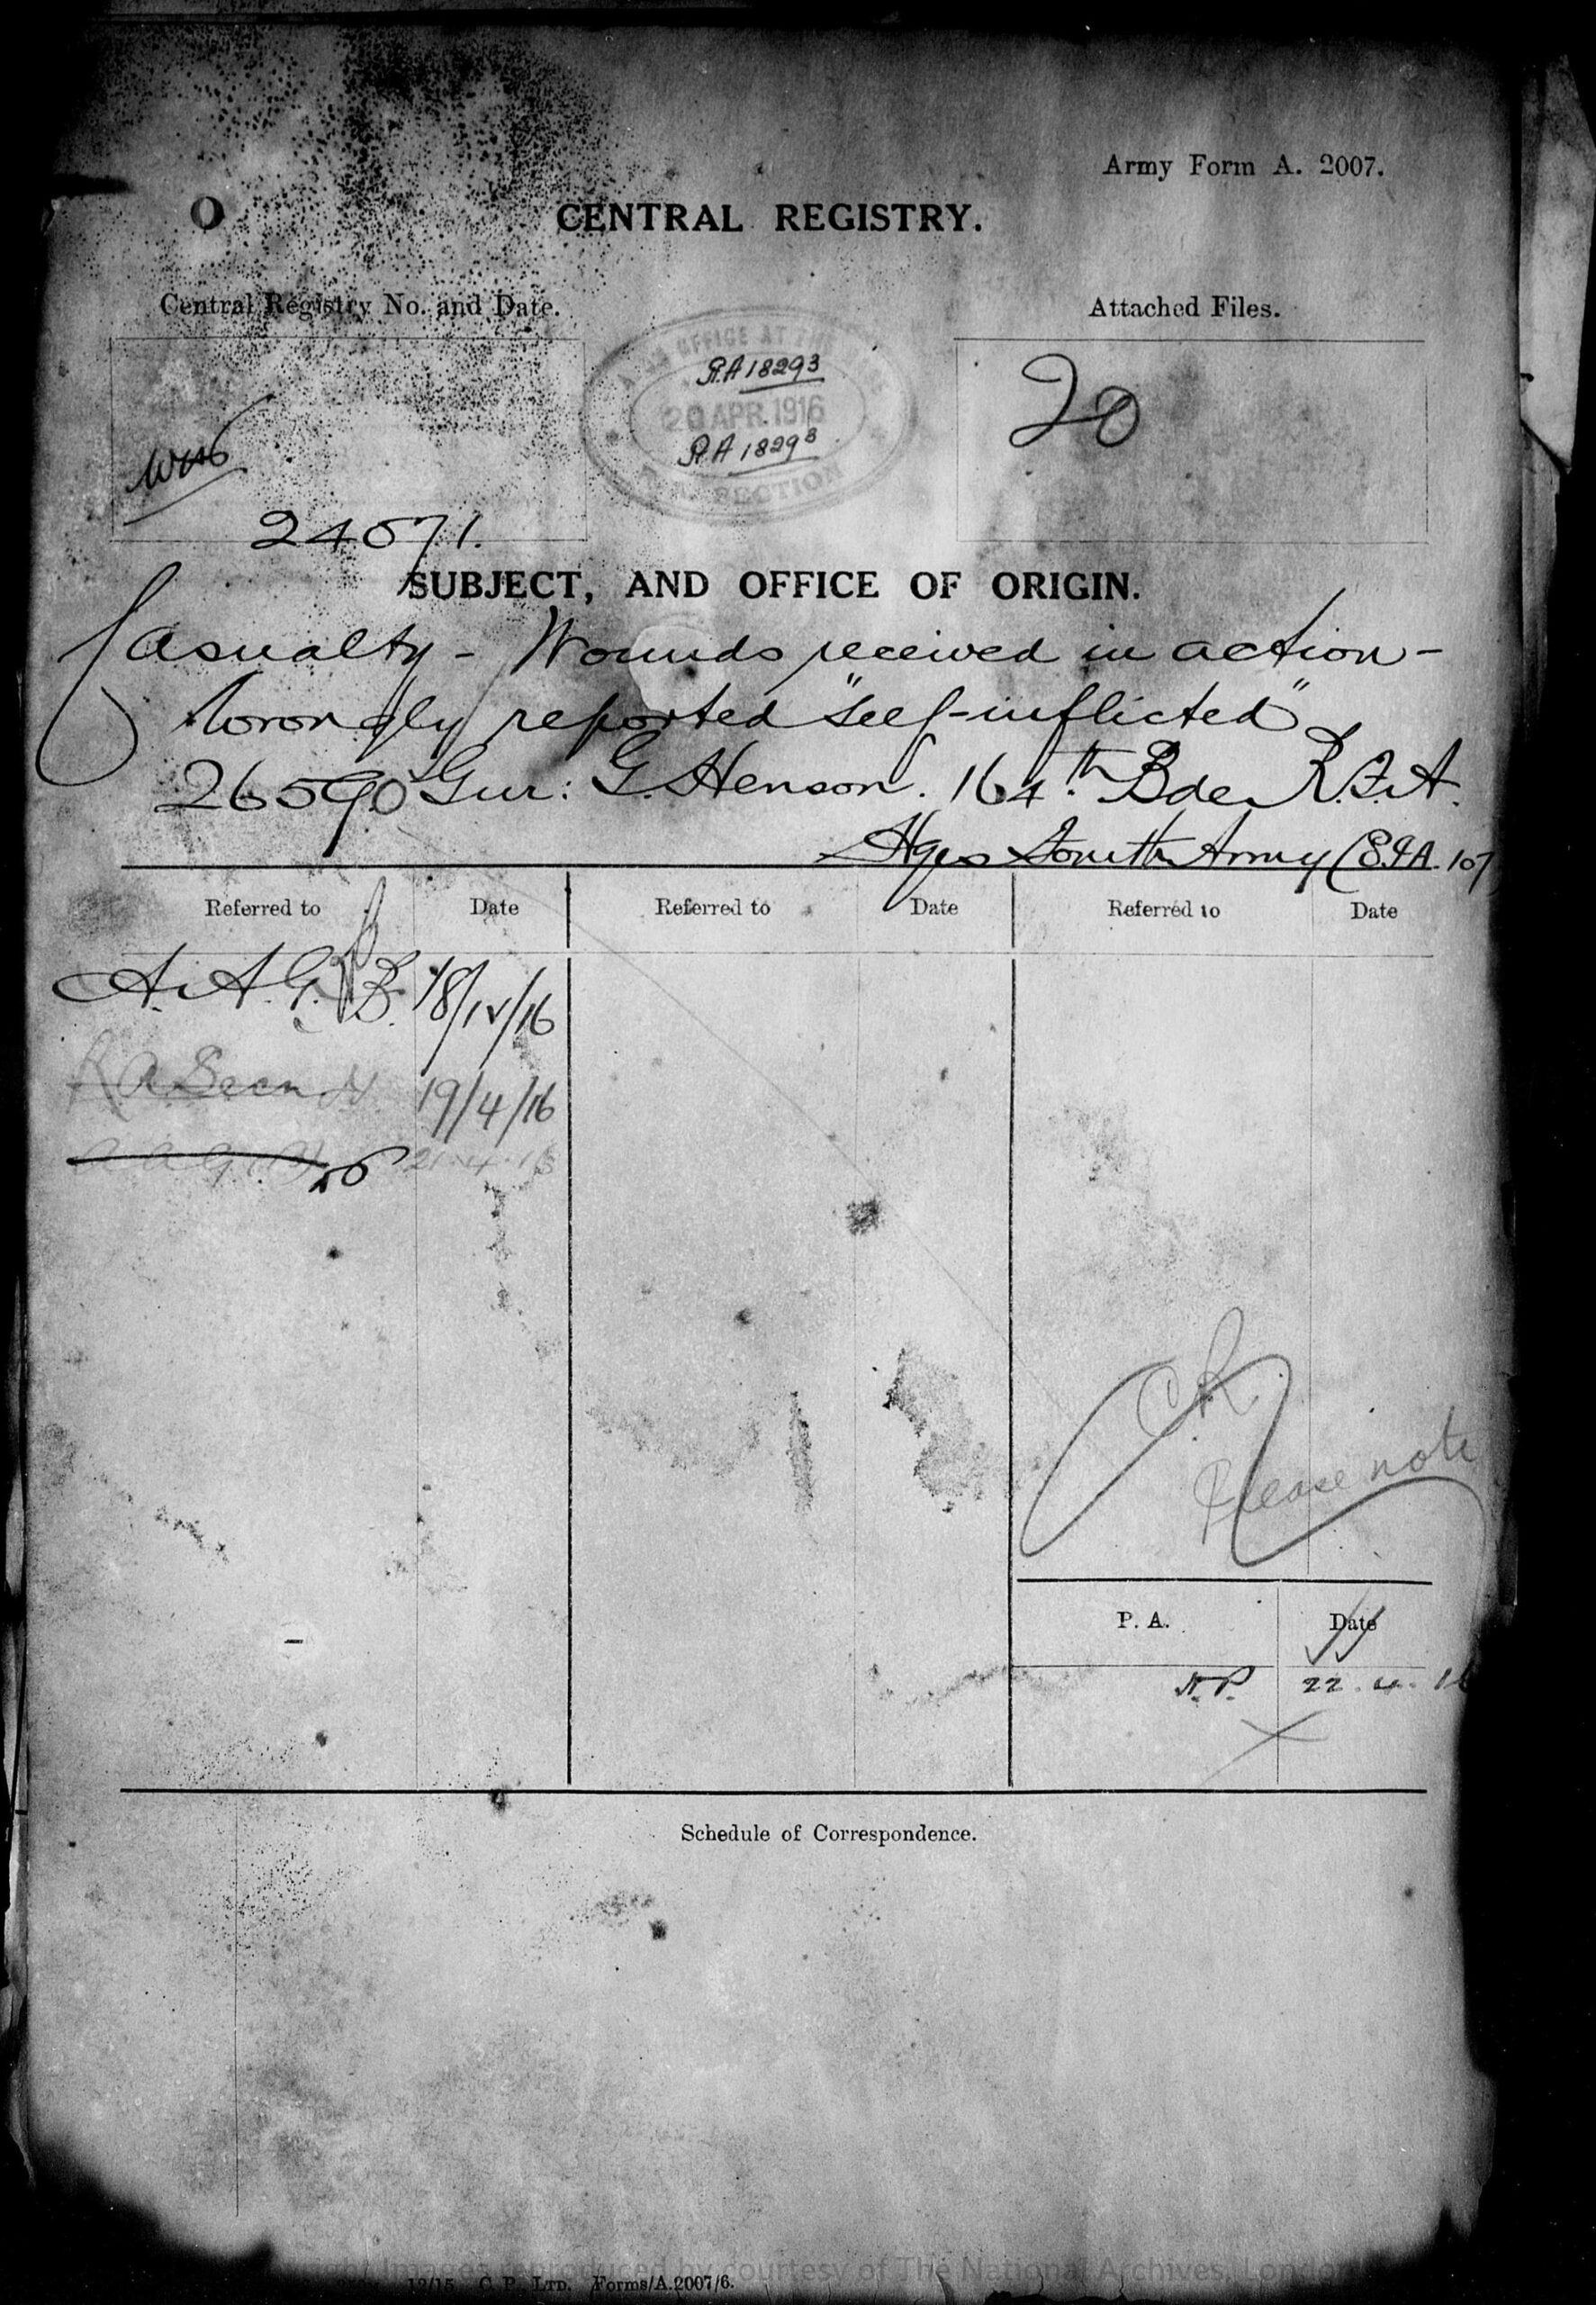 Army Form A. 2007.
CENTRAL REGISTRY.
Central Registry No. and Date.
Attached Files.
OFFICE AT THE
R.A 18293
20 APR. 1916
R.A 18293
SECTION
20
24071.
SUBJECT, AND OFFICE OF ORIGIN.
Casualty - Wounds received in action -
Wrongly reported "Self-inflicted"
26590 Gnr: G. Henson. 164th Bde R.F.A.
Hqrs Fourth Army (
Referred to Date Referred to Date Referred to Date
A.A.G. B. 18/4/16
19/4/16
A A G (B) 21.4.16
C.R.
Please note
P. A. Date
22.4.16
Schedule of Correspondence.
12/15 C. P., LTD. Forms/A.2007/6.
Images reproduced by courtesy of The National Archives, London